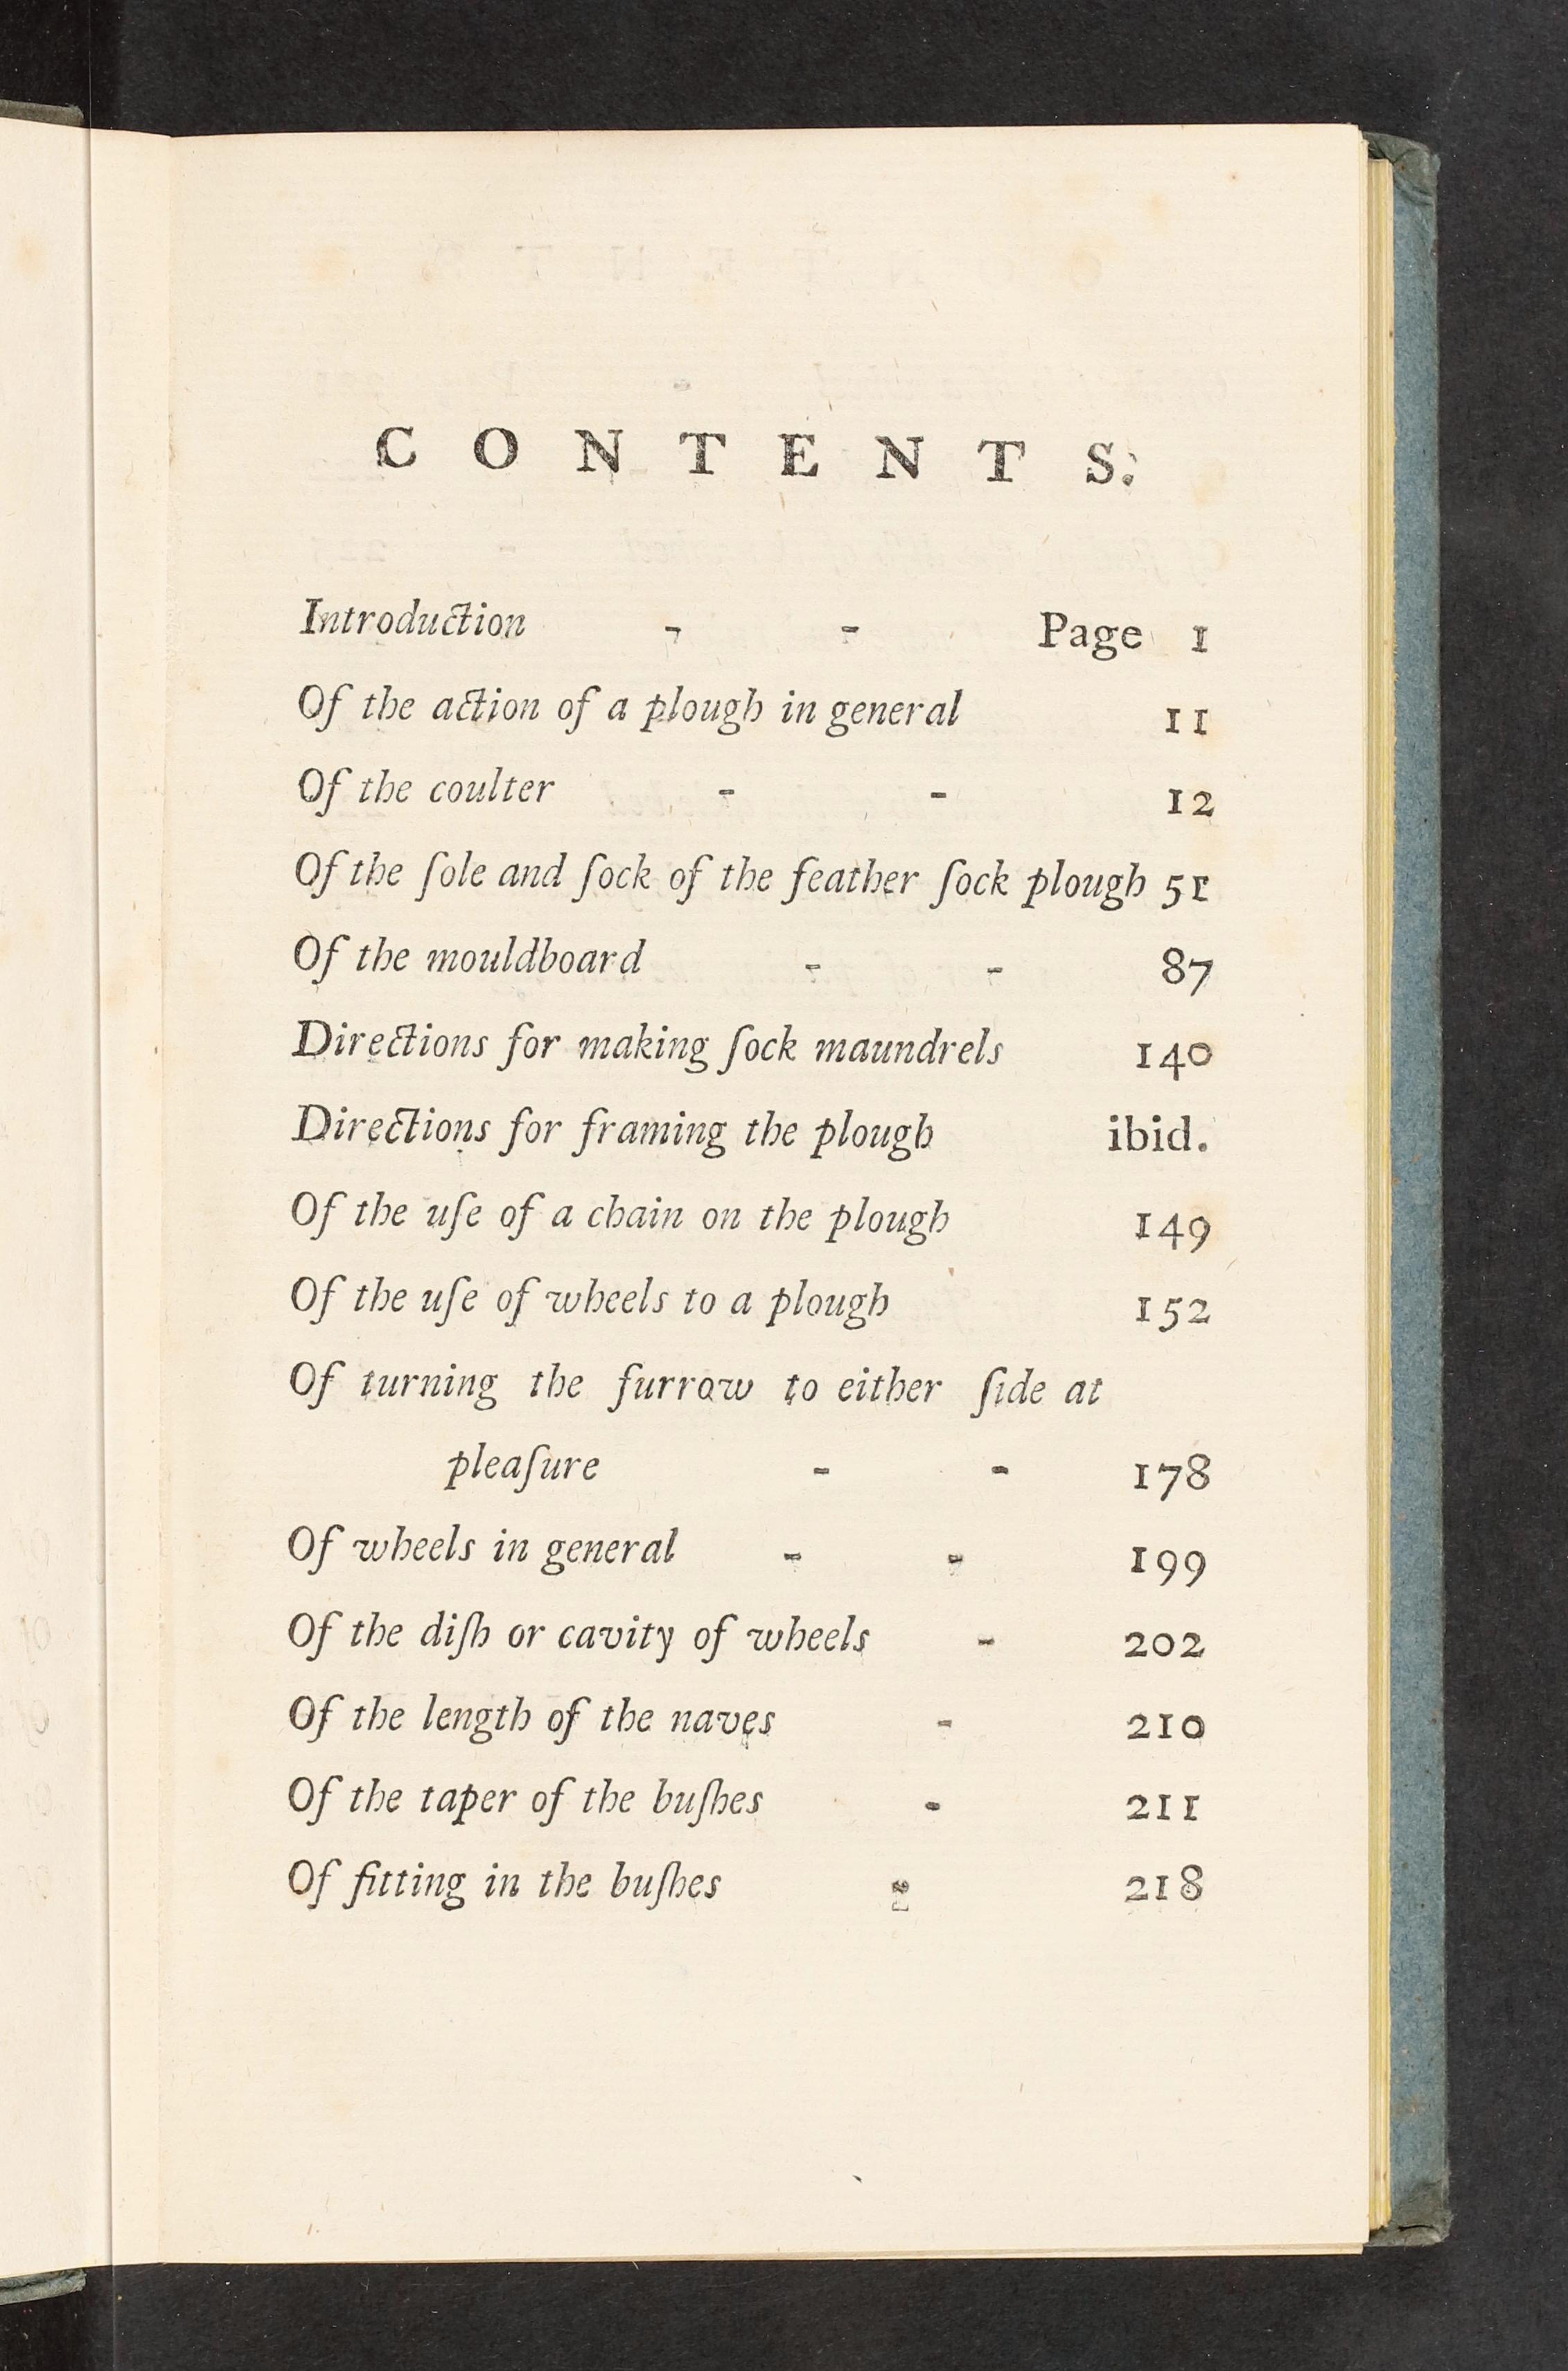 CONTENTS.
Introduction - - Page 1
Of the action of a plough in general 11
Of the coulter - - 12
Of the ſole and ſock of the feather ſock plough 51
Of the mouldboard - - 87
Directions for making ſock maundrels 140
Directions for framing the plough ibid.
Of the uſe of a chain on the plough 149
Of the uſe of wheels to a plough 152
Of turning the furrow to either ſide at
pleaſure - - 178
Of wheels in general - - 199
Of the diſh or cavity of wheels - 202
Of the length of the naves - 210
Of the taper of the buſhes - 211
Of fitting in the buſhes - 218